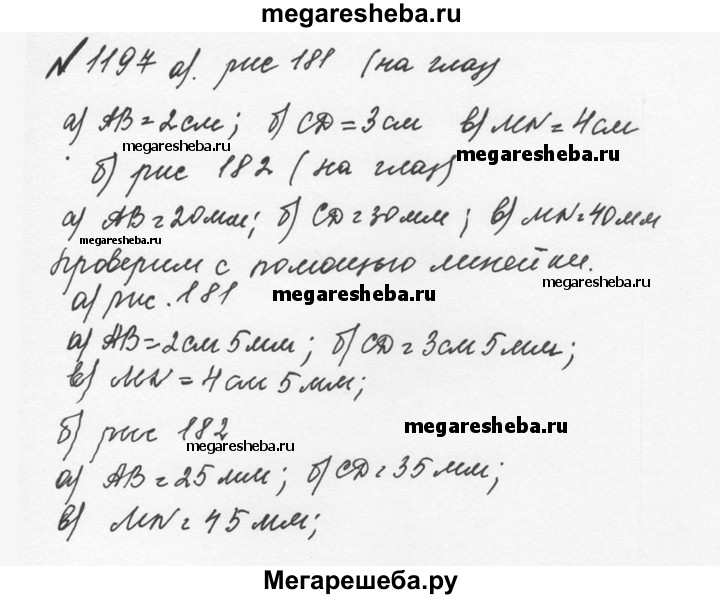 megaresheba.ru
№ 1197 а). рис 181 (на глаз)
а) AB = 2 см; б) CD = 3 см в) MN = 4 см
megaresheba.ru
megaresheba.ru
б) рис 182 (на глаз)
а) AB = 20 мм; б) CD = 30 мм; в) MN = 40 мм
megaresheba.ru
проверим с помощью линейки.
megaresheba.ru
а) рис. 181
megaresheba.ru
а) AB = 2 см 5 мм; б) CD = 3 см 5 мм;
в) MN = 4 см 5 мм;
б) рис 182
megaresheba.ru
megaresheba.ru
а) AB = 25 мм; б) CD = 35 мм;
в) MN = 45 мм;
Мегарешеба.ру